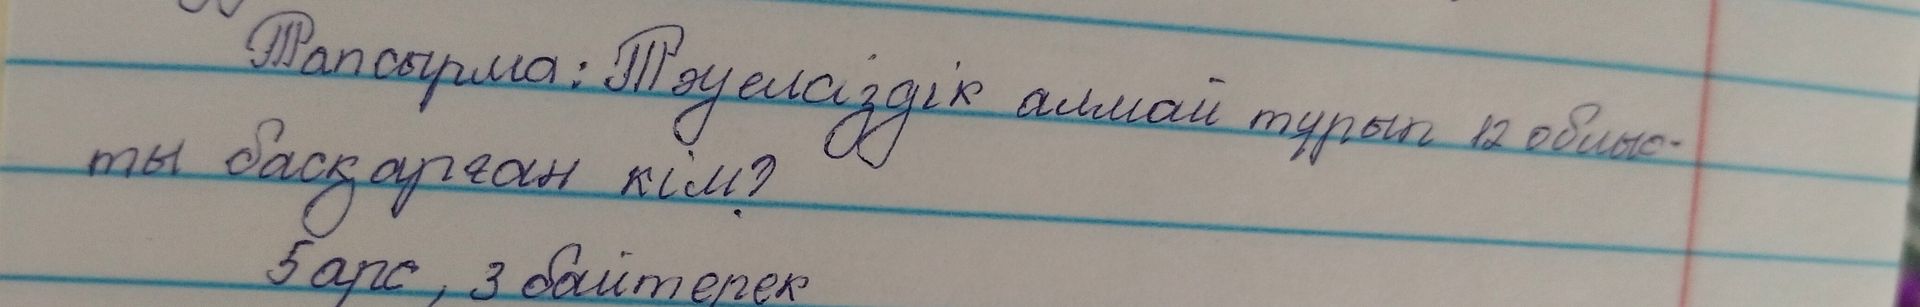 Тапсырма: Тәуелсіздік алмай тұрып 12 облыс-
ты басқарған кім?
5 арс, 3 байтерек